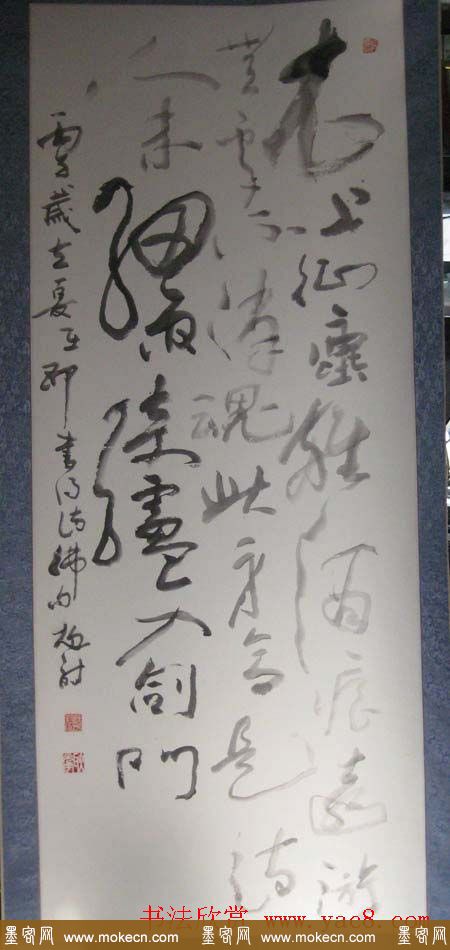 衣上征塵雜酒痕遠游
無處不消魂此身合是詩
人未細雨騎驢入劍門
丙子歲立夏
書法欣赏 www.yac8.com
墨客网 www.mokecn.com 墨客网 www.mokecn.com 墨客网